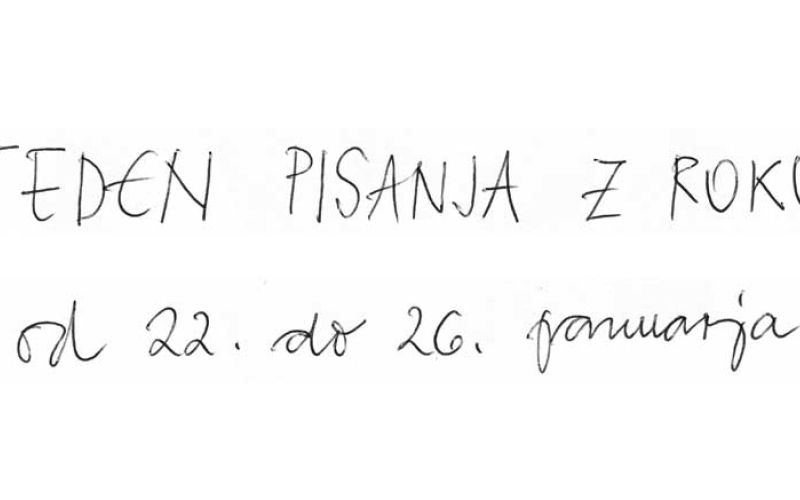 TEDEN PISANJA Z ROKO
od 22. do 26. januarja